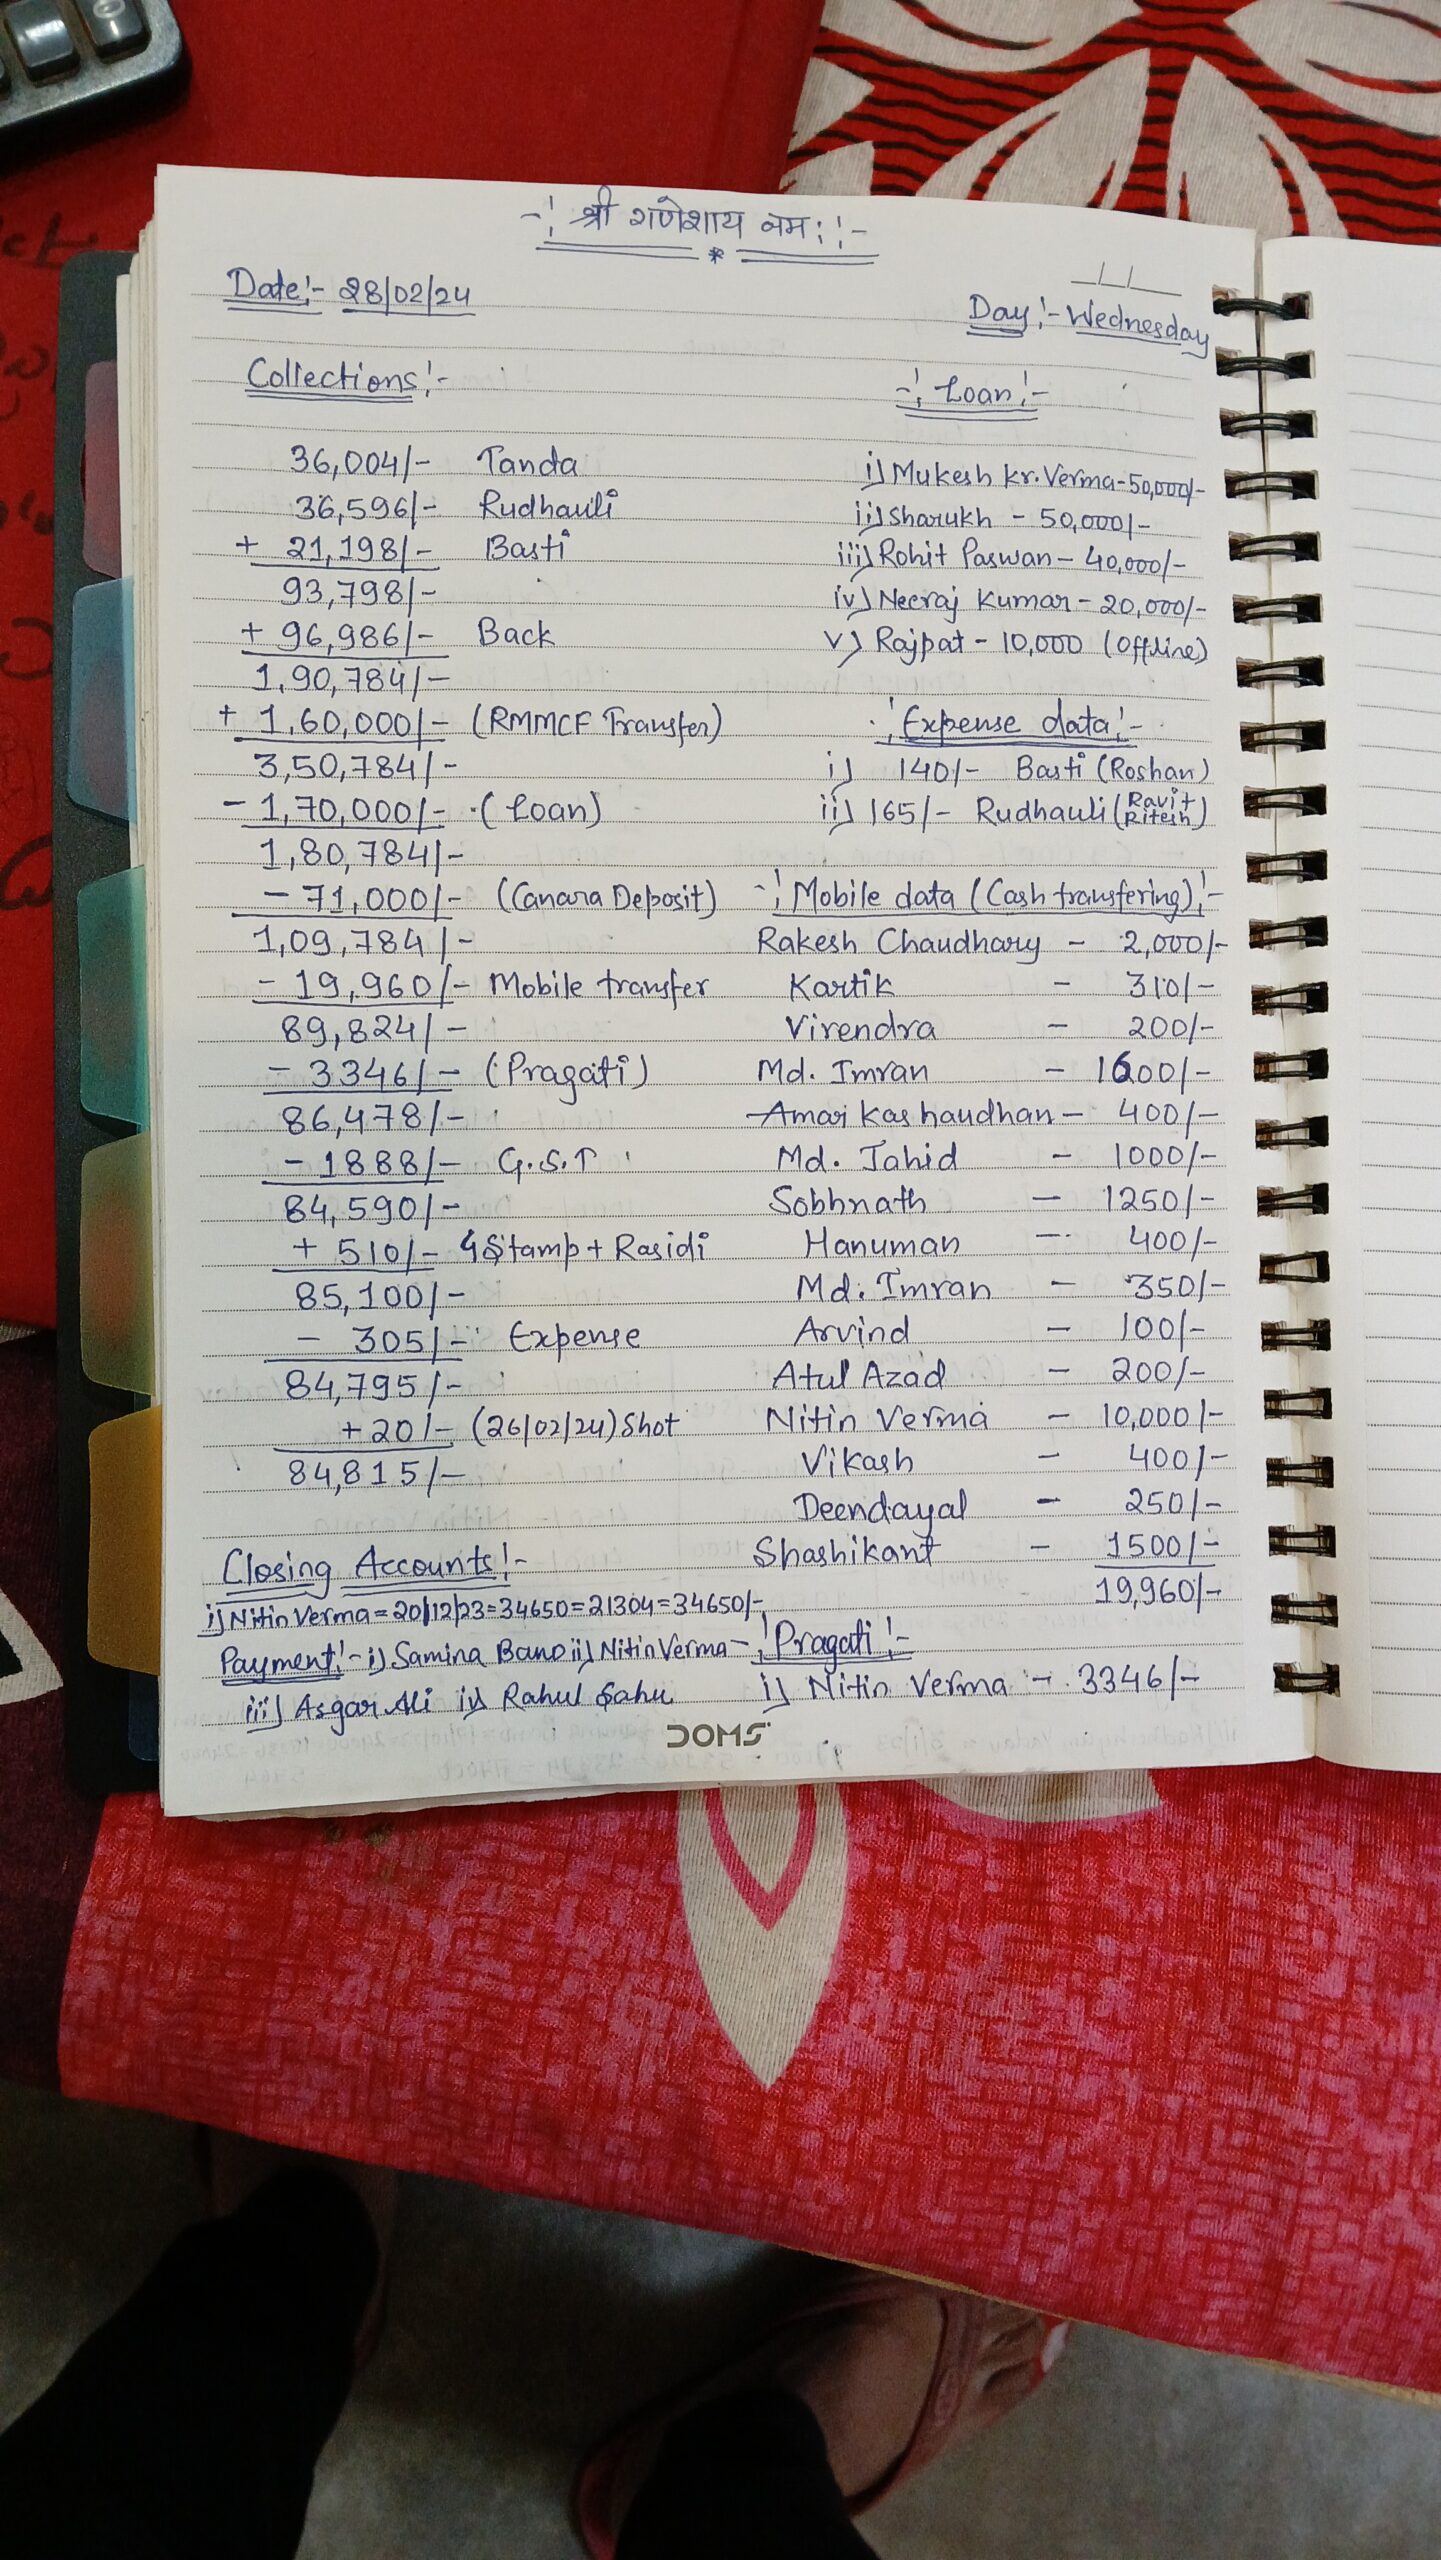 -: श्री गणेशाय नमः :-
Date:- 28/02/24
Day:- Wednesday
Collections:-
36,004/- Tanda
36,596/- Rudhauli
+ 21,198/- Basti
93,798/-
+ 96,986/- Back
1,90,784/-
+ 1,60,000/- (RMMCF Transfer)
3,50,784/-
- 1,70,000/- (Loan)
1,80,784/-
- 71,000/- (Canara Deposit)
1,09,784/-
- 19,960/- Mobile transfer
89,824/-
- 3346/- (Pragati)
86,478/-
- 1888/- G.S.T
84,590/-
+ 510/- 4 Stamp + Rasidi
85,100/-
- 305/- Expense
84,795/-
+ 20/- (26/02/24) Shot
84,815/-
-: Loan :-
i) Mukesh kr. Verma - 50,000/-
ii) Sharukh - 50,000/-
iii) Rohit Paswan - 40,000/-
iv) Neeraj Kumar - 20,000/-
v) Rajpat - 10,000 (offline)
: Expense data :-
i) 140/- Basti (Roshan)
ii) 165/- Rudhauli (Ravit Ritesh)
-: Mobile data (Cash transfering) :-
Rakesh Chaudhary - 2,000/-
Kartik - 310/-
Virendra - 200/-
Md. Imran - 1600/-
Amar kashaudhan - 400/-
Md. Jahid - 1000/-
Sobhnath - 1250/-
Hanuman - 400/-
Md. Imran - 350/-
Arvind - 100/-
Atul Azad - 200/-
Nitin Verma - 10,000/-
Vikash - 400/-
Deendayal - 250/-
Shashikant - 1500/-
19,960/-
Closing Accounts:-
i) Nitin Verma = 20/12/23 = 34650 = 21304 = 34650/-
Payment:- i) Samina Bano ii) Nitin Verma
iii) Asgar Ali iv) Rahul Sahu
-: Pragati :-
i) Nitin Verma - 3346/-
DOMS